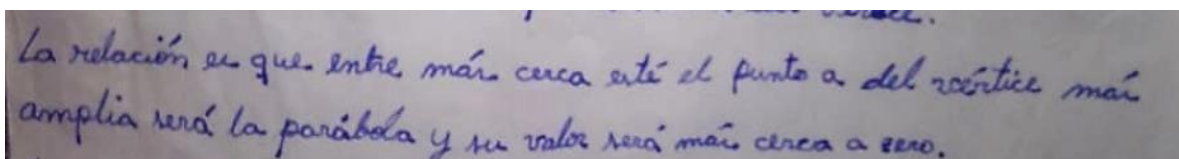 La relación es que entre más cerca esté el punto a del vértice más
amplia será la parábola y su valor será más cerca a zero.